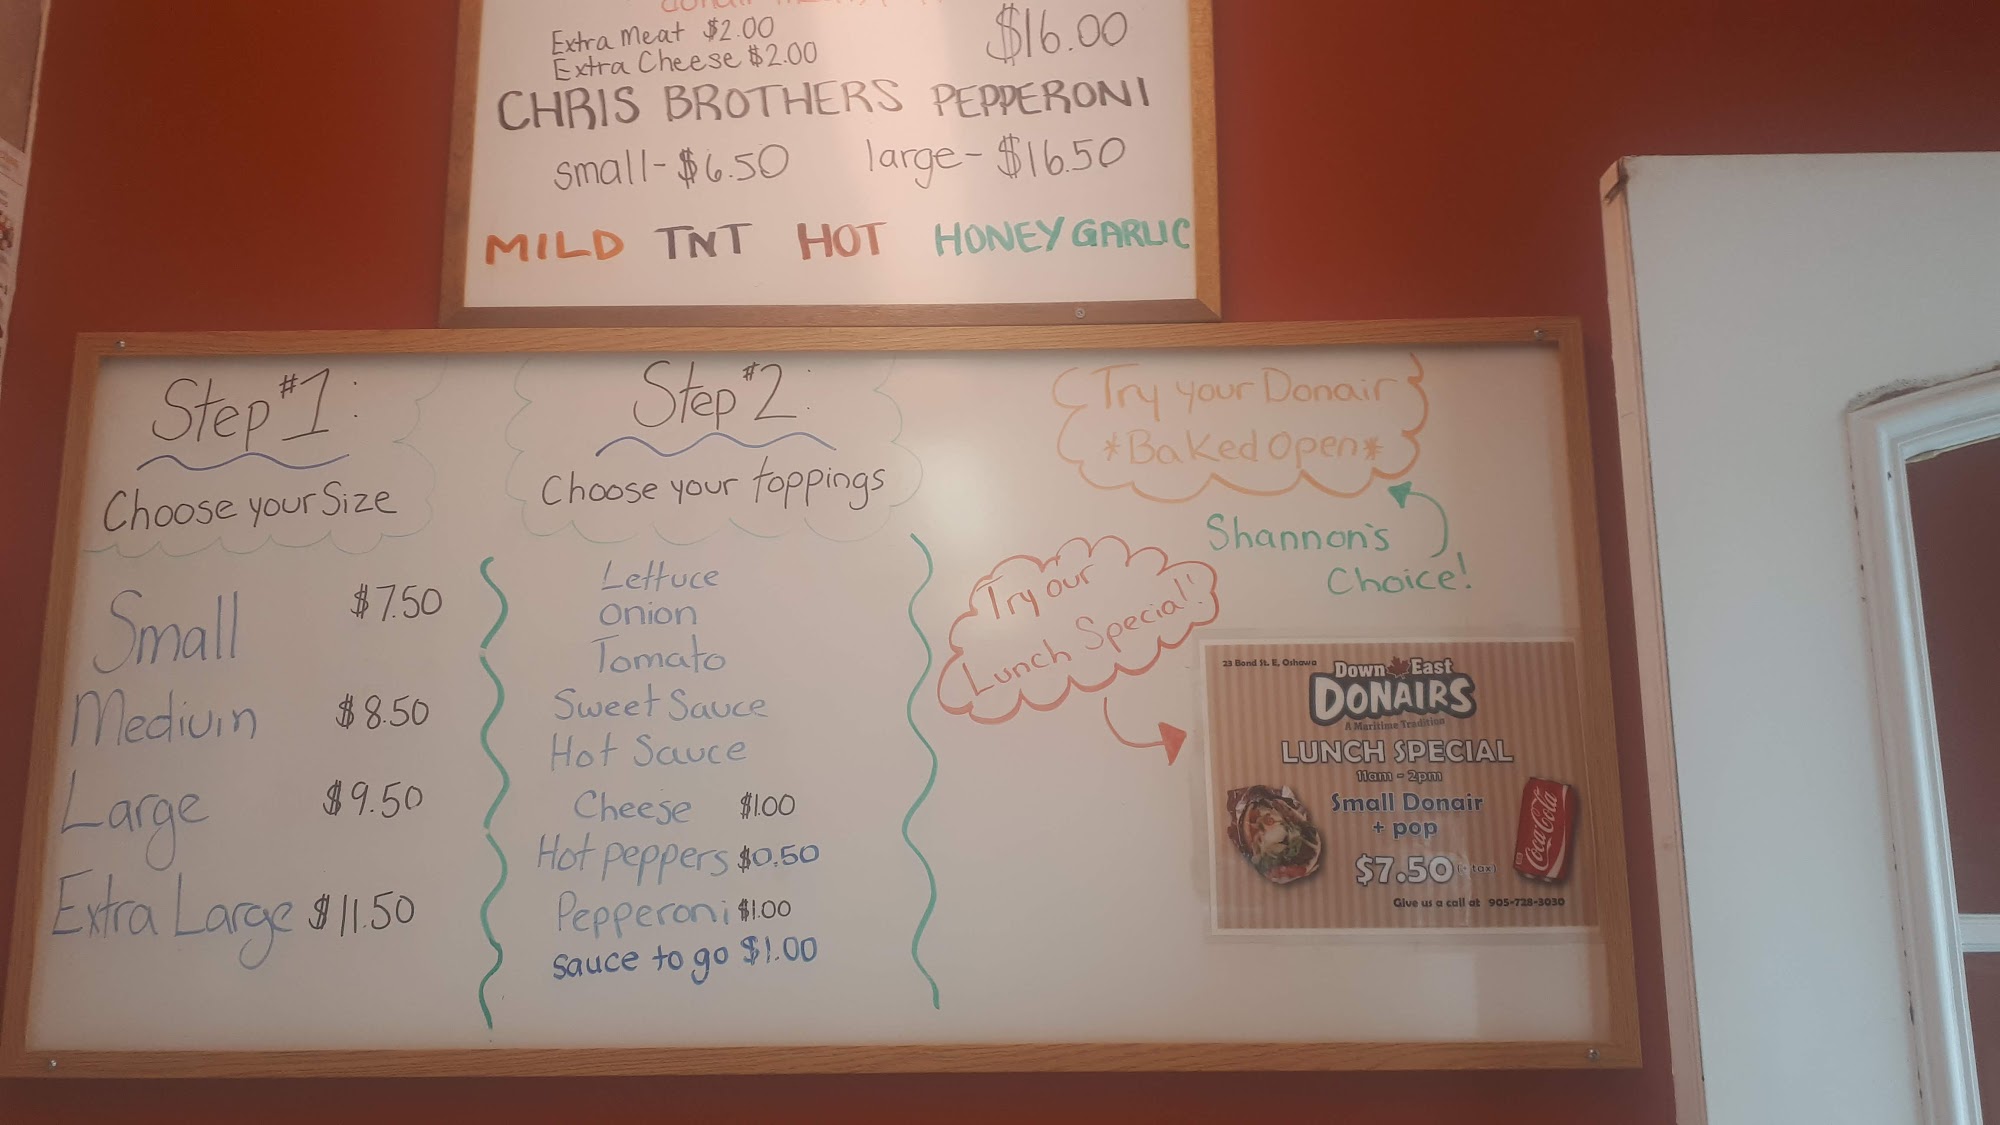 Extra Meat $2.00
Extra Cheese $2.00
$16.00
CHRIS BROTHERS PEPPERONI
small-$6.50 large-$16.50
MILD TNT HOT HONEY GARLIC
Step #1:
Choose your Size
Small $7.50
Medium $8.50
Large $9.50
Extra Large $11.50
Step #2:
Choose your toppings
Lettuce
Onion
Tomato
Sweet Sauce
Hot Sauce
Cheese $1.00
Hot peppers $0.50
Pepperoni $1.00
sauce to go $1.00
Try your Donair
*Baked Open*
Shannon's
Choice!
Try our
Lunch Special!
23 Bond St. E, Oshawa
Down East
DONAIRS
A Maritime Tradition
LUNCH SPECIAL
11am - 2pm
Small Donair
+ pop
$7.50 (+ tax)
Coca-Cola
Give us a call at 905-728-3030